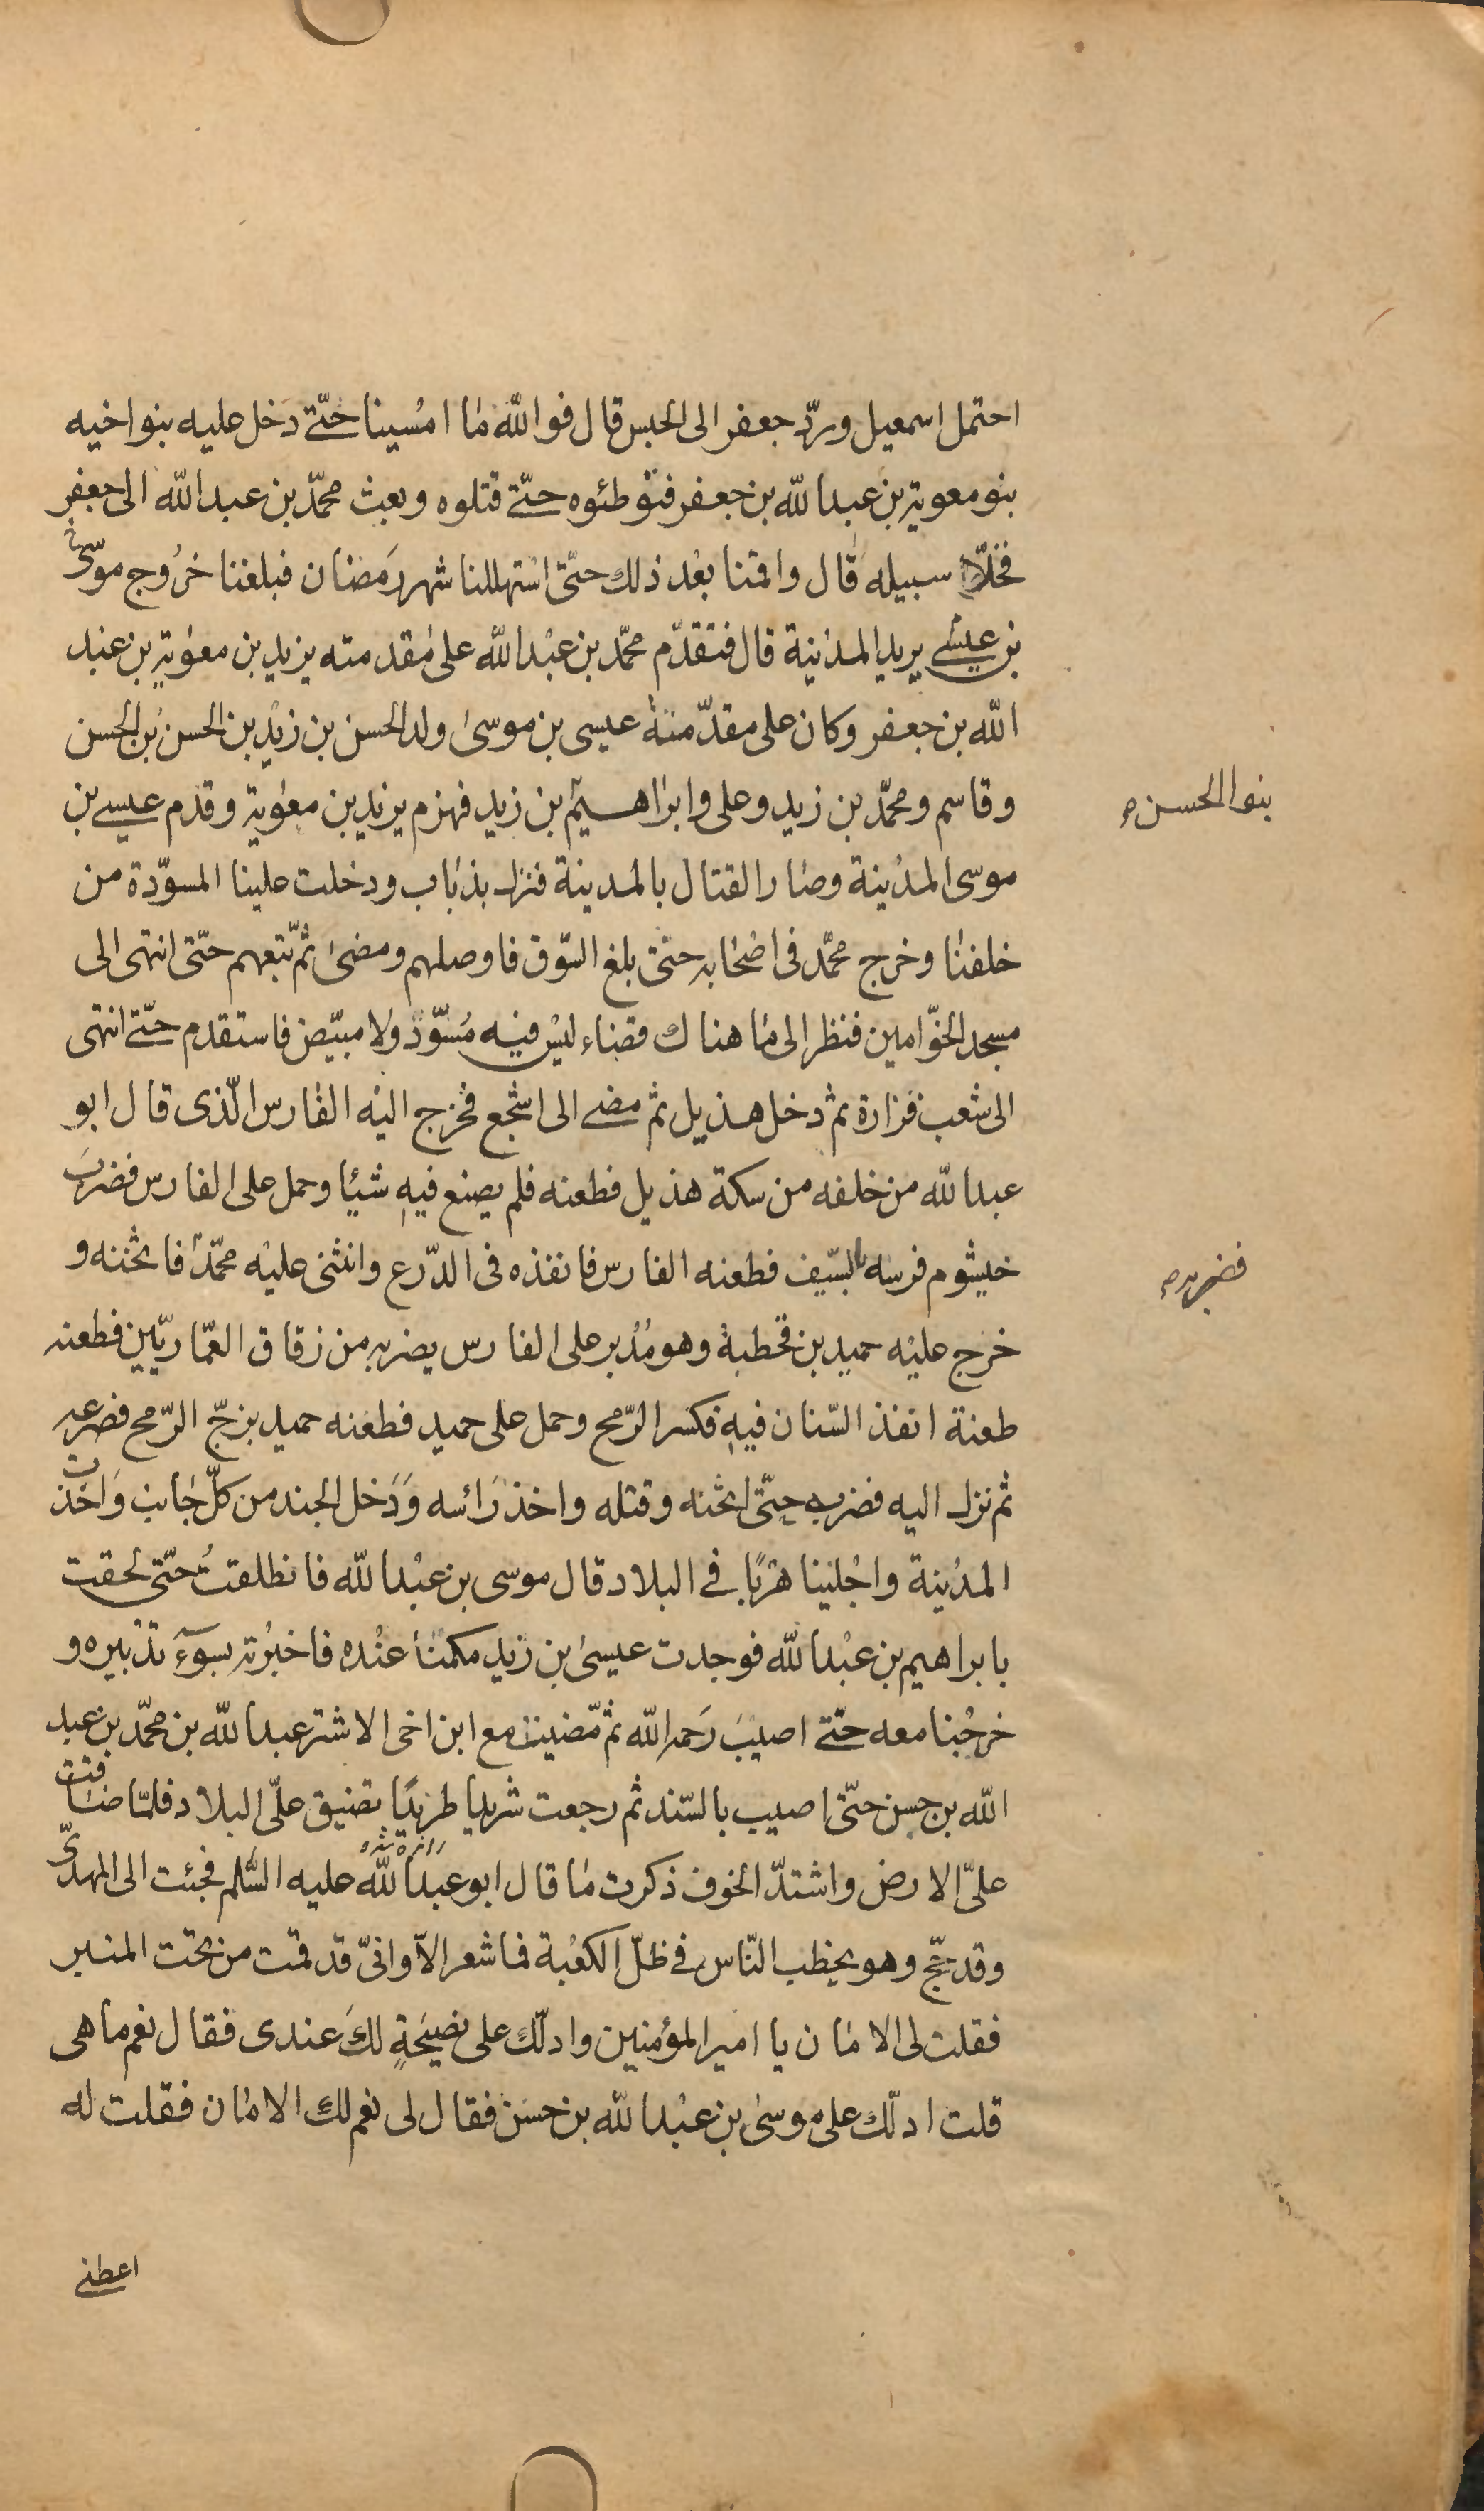 احتمل اسمعيل وردّ جعفر الى الحبس قال فوالله مٰا امْسينا حتّے دخل عليه بنو اخيه
بنو معوية بن عبدالله بن جعفر فتوطئوه حتّے قتلوه وبعث محمّد بن عبدالله الى جعفر
فخلّا سبيله قال واقمنا بعْد ذلك حتّى اسْتهللنا شهر رَمضان فبلغنا خرُوج موسٰى
بن عيسٰے يريد المدْينة قال فتقدّم محمّد بن عبْدالله علىٰ مُقدمته يزيد بن معوٰية بن عبْد
الله بن جعفر وكان على مقدّمته عيسى بن موسىٰ ولد الحسن بن زيْد بن الحسن بن الحسن
وقاسم ومحمّد بن زيد وعلى وابرٰاهيم بن زيد فهزم يزيد بن معوٰية وقدم عيسے بن
بنو الحسن م
موسى المدْينة وصٰار القتال بالمدينة فنزل بذبٰاب ودخلت علينا المسوّدة من
خلفنٰا وخرج محمّد فى اصْحٰابه حتّى بلغ السّوق فاوصلهم ومضىٰ ثمّ تبعهم حتّى انتهى الى
مسجد الخوّامين فنظر الى مٰا هناك فضاء ليْس فيْه مُسوّد ولا مبيّض فاستقدم حتّے انتهى
الى شعب فزارة ثم دخل هذيل ثم مضے الى اشجع فخرج اليْه الفٰارس الّذى قال ابو
عبدالله من خلفه من سكة هذيل فطعنه فلم يصنع فيهِ شيئا وحمل على الفارس فضربَ
خيشوم فرسه بالسّيف فطعنه الفارس فانفذه فى الدّرع وانثنى عليْه محمّد فاثخنه و
فضربه م
خرج عليْه حميد بن قحطبة وهو مُدْبر على الفارس يضربه من زقاق العمّاريّين فطعنه
طعنة انفذ السّنان فيهِ فكسر الرّمح وحمل على حميد فطعنه حميد بزجّ الرّمح فصرعه
ثم نزل اليه فضربه حتّى اثخنه وقتله واخذ رَائسه وَدَخل الجند من كلّ جٰانب وَاخذت
المدْينة واجْلينا هرْبًا فے البلاد قال موسى بن عبْدالله فانطلقتُ حتّى لحقت
بابراهيم بن عبْدالله فوجدت عيسىٰ بن زيد مكمنًا عنْده فاخبرْته بسوٓءِ تدْبيره و
خرجْنا معه حتّے اصيبَ رَحمه الله ثم مّضيت مع ابن اخى الاشتر عبدالله بن محمّد بن عبد
الله بن حسن حتّى اصيب بالسّند ثم رجعت شريدا طريْدًا تضيق علىّ البلاد فلمّا ضٰاقت
علىّ الارض واشتدّ الخوف ذكرت مٰا قال ابو عبْدالله عليه السّلم فجئت الى المهدىّ
وقد حجّ وهو يخطب النّاس فے ظلّ الكعْبة فما شعر الّا وانىّ قد قمت من تحت المنبر
فقلت لى الامٰان يا امير المؤمنين وادلّك على نصيْحَةٍ لكَ عندى فقال نعم ما هى
قلت ادلّك على موسىٰ بن عبْدالله بن حسَن فقال لى نعم لك الامٰان فقلت له
اعطنے